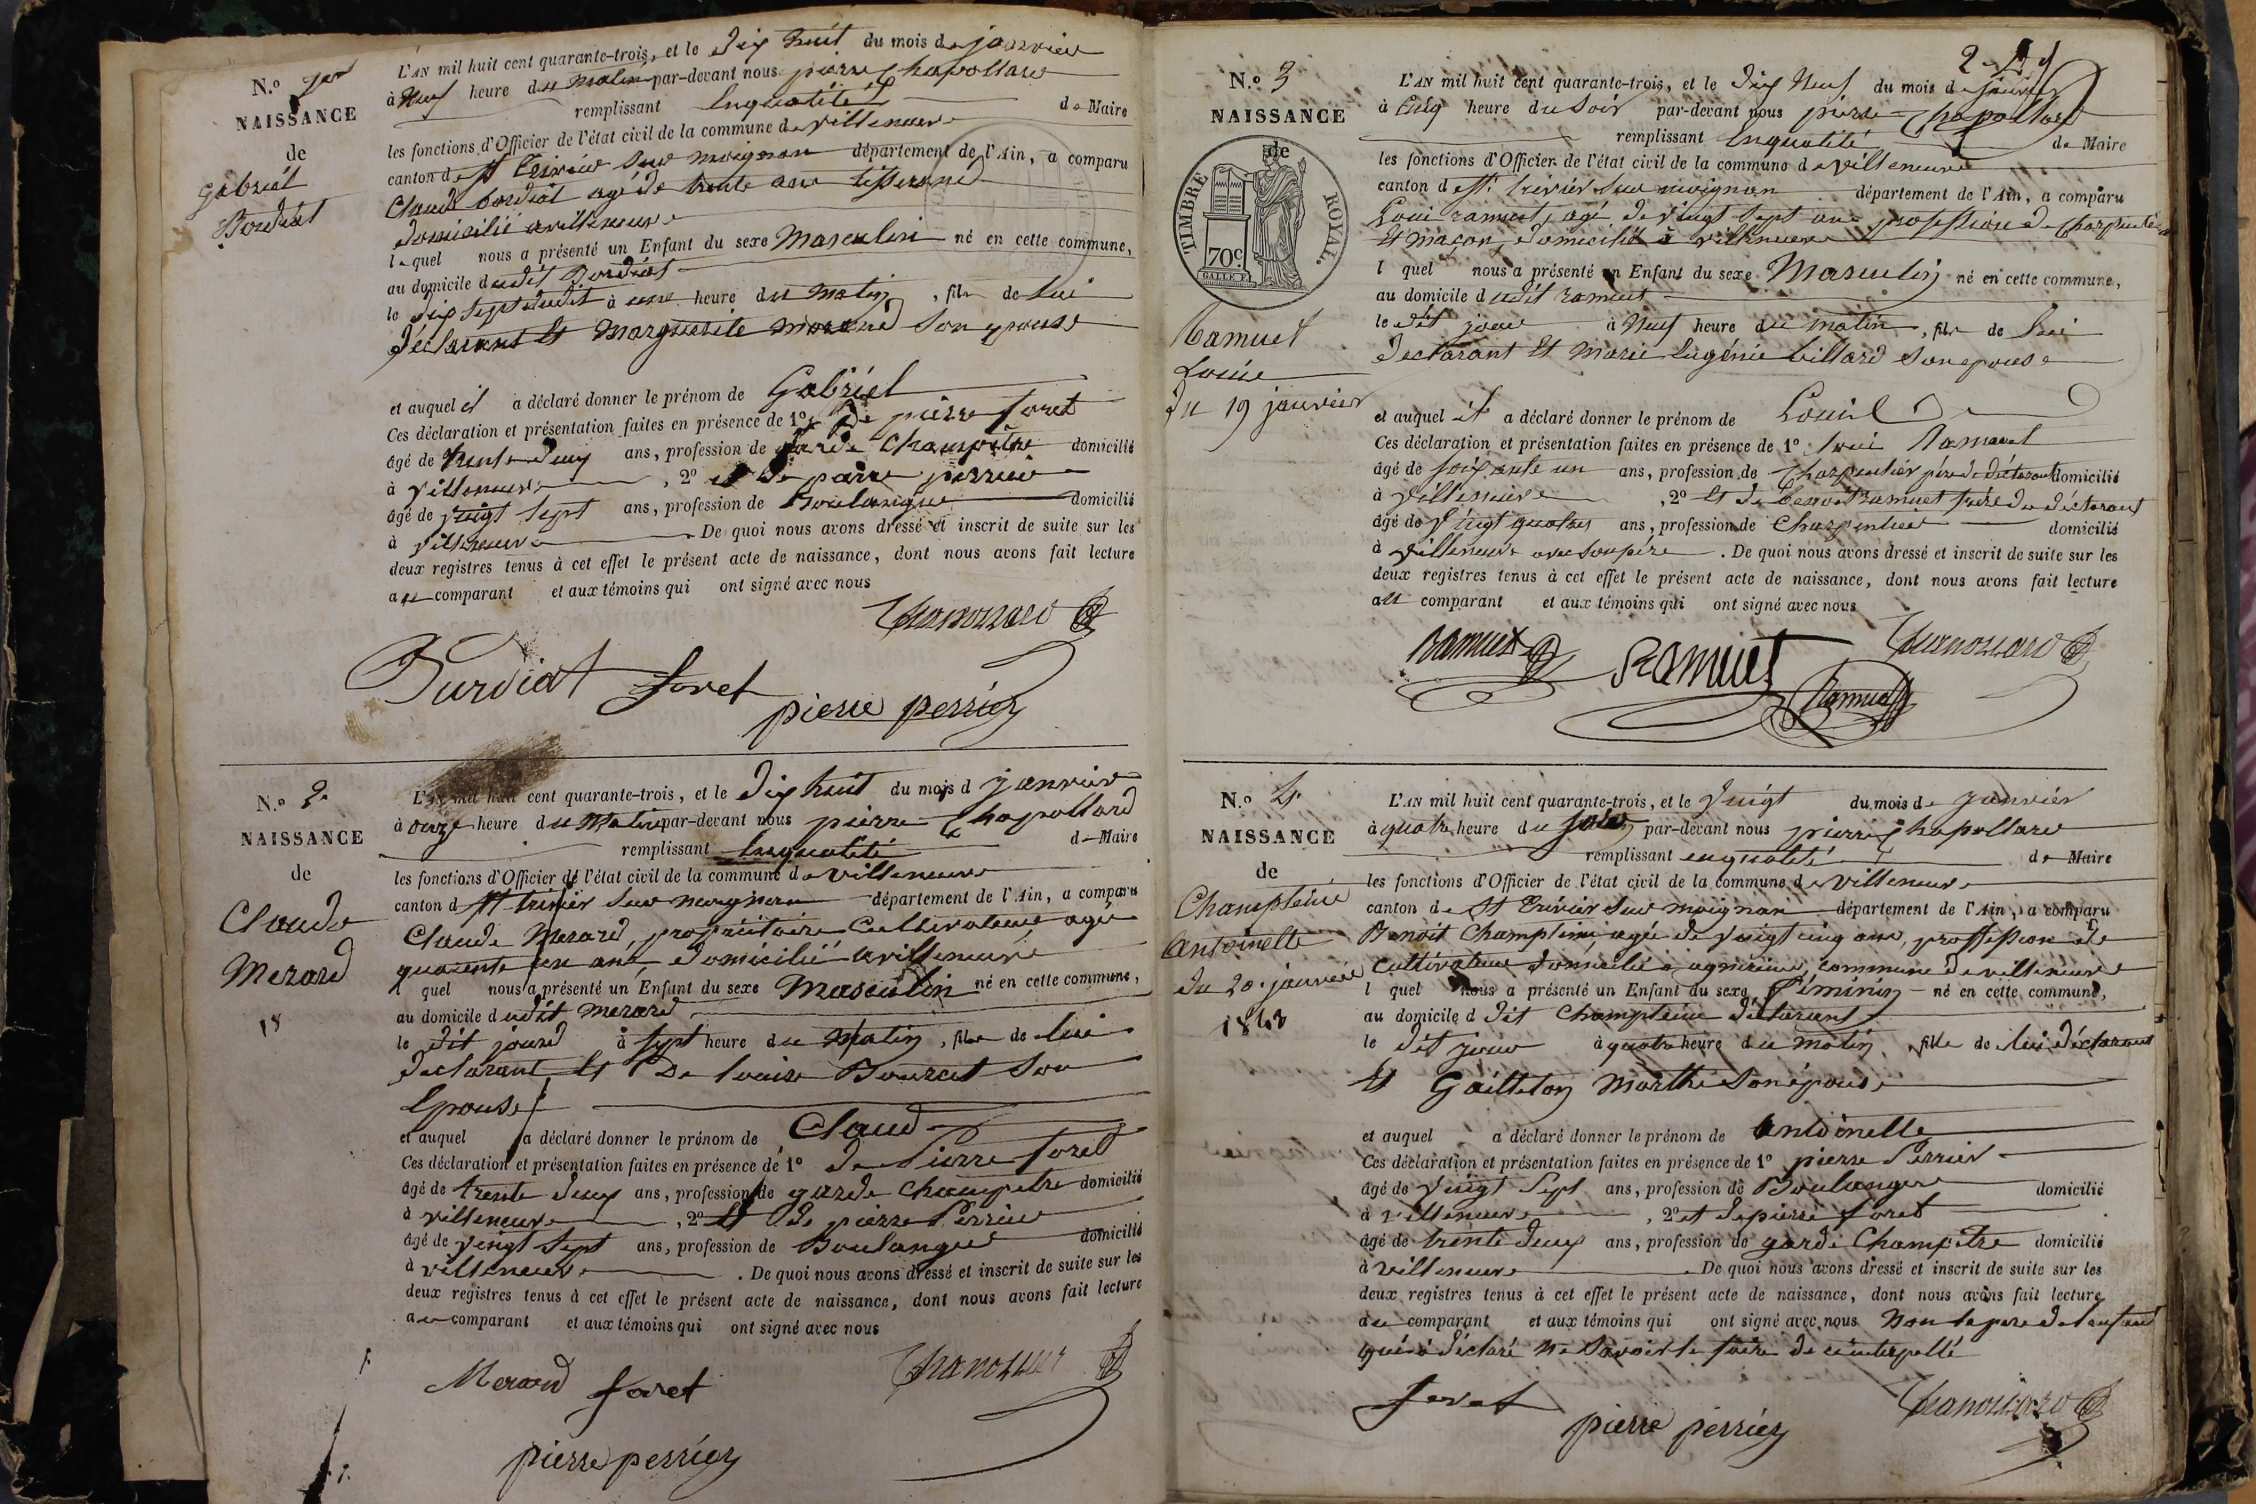 N.o 1er
NAISSANCE
de
gabriel
Bordiat
L'AN mil huit cent quarante-trois, et le dix huit du mois de janvier
à Neuf heure du matin par-devant nous pierre Chapollard
remplissant Enqualité de Maire
les fonctions d'Officier de l'état civil de la commune de villeneuve
canton de St trivier sur moignan département de l'Ain, a comparu
Claude bordiat agé de trente ans tisserand
domicilié a villeneuve
lequel nous a présenté un Enfant du sexe Masculin né en cette commune,
au domicile dudit Bordiat
le dix sept dudit à une heure du matin, fils de lui
déclarant Et Marguerite morand son epouse
et auquel il a déclaré donner le prénom de Gabriel
Ces déclaration et présentation faites en présence de 1o de pierre foret
âgé de trente deux ans, profession de garde Champêtre domicilié
à villeneuve, 2o et de pierre perrier
âgé de vingt sept ans, profession de Boulanger domicilié
à villeneuve. De quoi nous avons dressé et inscrit de suite sur les
deux registres tenus à cet effet le présent acte de naissance, dont nous avons fait lecture
au comparant et aux témoins qui ont signé avec nous
Chapollard
Burdiat foret
pierre perrier
N.o 2
NAISSANCE
de
Claude
Merard
18
L'AN mil huit cent quarante-trois, et le dix huit du mois d janvier
à onze heure du Matin par-devant nous pierre Chapollard
remplissant Enqualité de Maire
les fonctions d'Officier de l'état civil de la commune de villeneuve
canton d St trivier sur moignan département de l'Ain, a comparu
Claude Merard, propriétaire Cultivateur agé
quarante un ans, domicilié a villeneuve
l quel nous a présenté un Enfant du sexe Masculin né en cette commune,
au domicile dudit merard
le dit jourd à sept heure du Matin, fils de lui
declarant Et De louise Bourcet son
Epouse
et auquel a déclaré donner le prénom de Claud
Ces déclaration et présentation faites en présence de 1o de Pierre foret
âgé de trente deux ans, profession de garde champetre domicilié
à villeneuve, 2o Et de pierre Perrier
âgé de vingt sept ans, profession de Boulanger domicilié
à villeneuve. De quoi nous avons dressé et inscrit de suite sur les
deux registres tenus à cet effet le présent acte de naissance, dont nous avons fait lecture
au comparant et aux témoins qui ont signé avec nous
Merard foret Chapollard
pierre perrier
N.o 3
NAISSANCE
de
TIMBRE ROYAL.
70c.
GALLE F.
Ramuet
Louis
du 19 janvier
L'AN mil huit cent quarante-trois, et le dix Neuf du mois de janvier
à Cinq heure du Soir par-devant nous pierre Chapollard
remplissant Enqualité de Maire
les fonctions d'Officier de l'état civil de la commune de villeneuve
canton d St. trivier sur moignan département de l'Ain, a comparu
Loui ramuet, agé de vingt sept ans profession de Charpentier
Et maçon, domicilié à villeneuve
l quel nous a présenté un Enfant du sexe Masculin né en cette commune,
au domicile dudit ramuet
le dit jour à Neuf heure du matin, fils de lui
declarant Et Marie Eugénie billard son epouse
et auquel il a déclaré donner le prénom de Louis
Ces déclaration et présentation faites en présence de 1o loui Ramuet
âgé de soixante un ans, profession de Charpentier père du déclarant domicilié
à villeneuve, 2o Et de benoit Ramuet frère du déclarant
âgé de vingt quatre ans, profession de Charpentier domicilié
à villeneuve avec son père. De quoi nous avons dressé et inscrit de suite sur les
deux registres tenus à cet effet le présent acte de naissance, dont nous avons fait lecture
au comparant et aux témoins qui ont signé avec nous
Ramuet Ramuet Chapollard
Ramuet
N.o 4
NAISSANCE
de
Antoinette
du 20. janvier
1843
L'AN mil huit cent quarante-trois, et le vingt du mois de janvier
à quatre heure du soir par-devant nous pierre Chapollard
remplissant enqualité de Maire
les fonctions d'Officier de l'état civil de la commune de villeneuve
canton de St trivier sur moignan département de l'Ain, a comparu
Benoit agé de vingt cinq ans, proffession de
cultivateur domicilié a agnereins, commune de villeneuve
l quel nous a présenté un Enfant du sexe féminin né en cette commune,
au domicile d dit déclarant
le dit jour à quatre heure du matin, fille de lui déclarant
Et Gailleton Marthe son épouse
et auquel a déclaré donner le prénom de Antoinette
Ces déclaration et présentation faites en présence de 1o pierre Perrier
âgé de vingt sept ans, profession de Boulanger domicilié
à villeneuve, 2o et de pierre foret
âgé de trente deux ans, profession de garde Champêtre domicilié
à villeneuve. De quoi nous avons dressé et inscrit de suite sur les
deux registres tenus à cet effet le présent acte de naissance, dont nous avons fait lecture
au comparant et aux témoins qui ont signé avec nous Non le pere de l'enfant
qui a déclaré ne savoir le faire de ce interpellé
foret Chapollard
pierre perrier